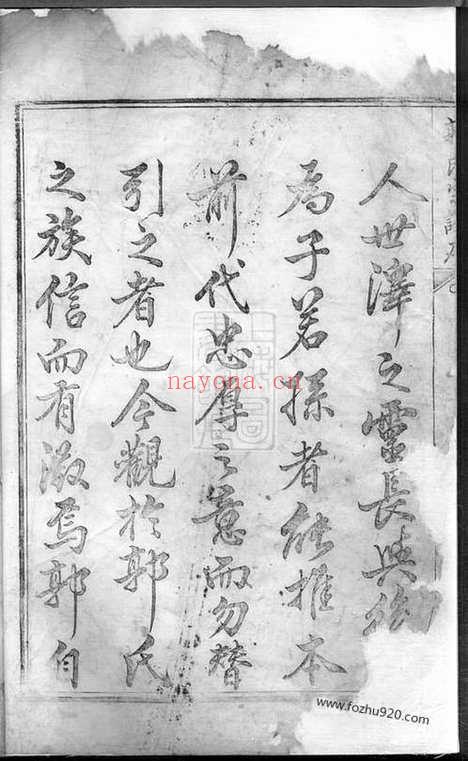 人世澤之靈長與後
為子若孫者能推本
前代忠厚之意而勿替
引之者也今觀於郭氏
之族信而有徵焉郭自
nayona.cn
www.fozhu920.com